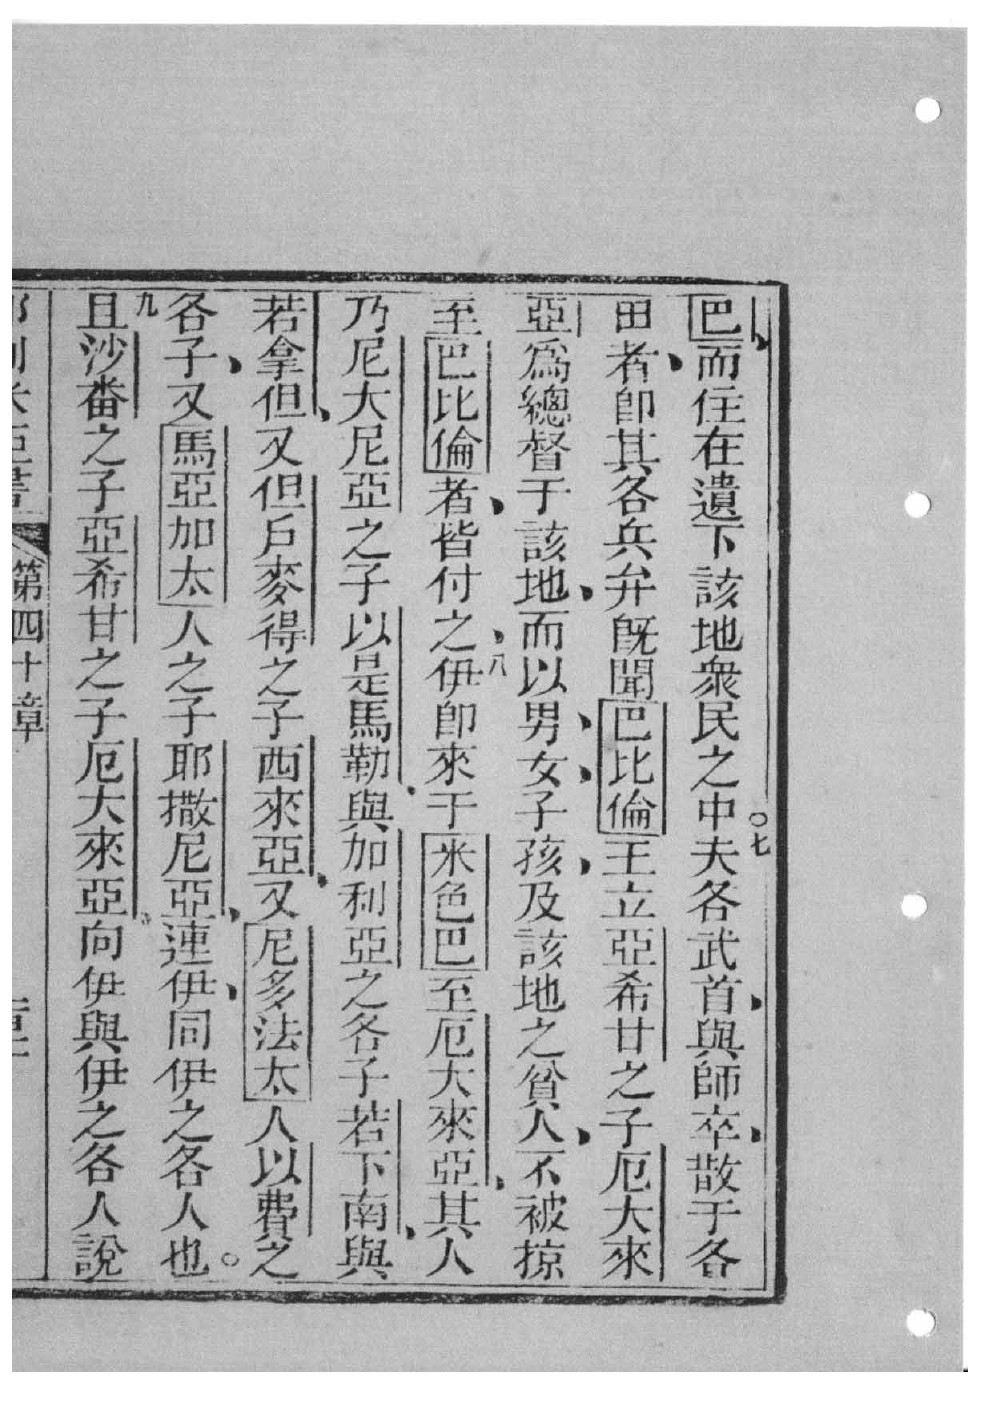 巴而住在遺下該地衆民之中○七夫各武首與師卒散于各
田者卽其各兵弁旣聞巴比倫王立亞希甘之子厄大來
亞爲總督于該地而以男女子孩及該地之貧人不被掠
至巴比倫者皆付之八伊卽來于米色巴至厄大來亞其人
乃尼大尼亞之子以是馬勒與加利亞之各子若下南與
若拿但又但戶麥得之子西來亞又尼多法太人以費之
各子又馬亞加太人之子耶撒尼亞連伊同伊之各人也○
九且沙畨之子亞希甘之子厄大來亞向伊與伊之各人說
第四十章